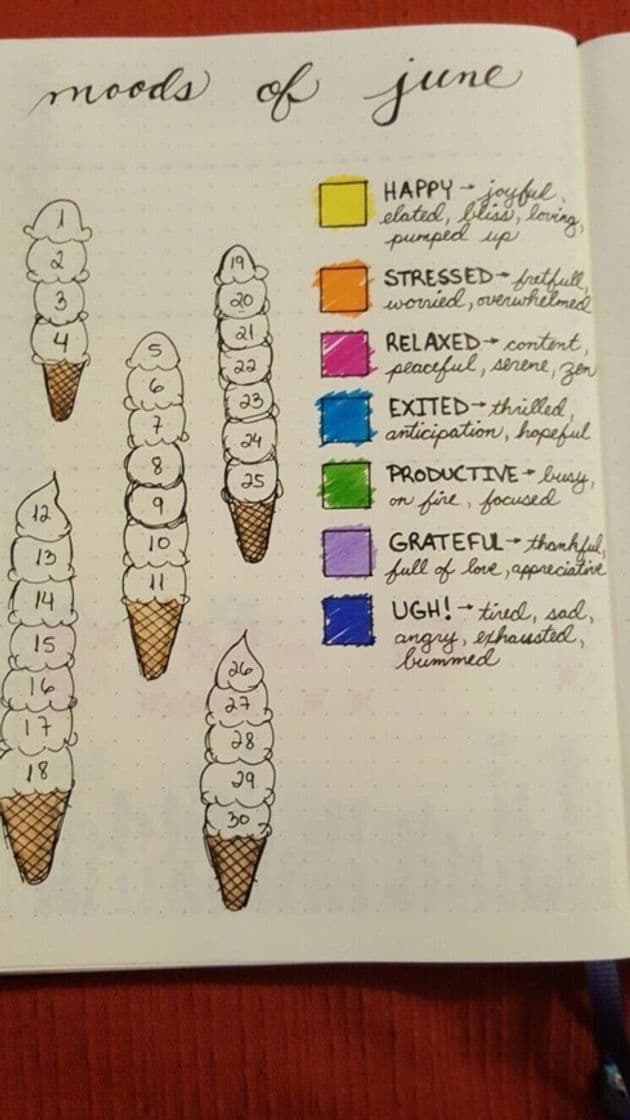 moods of june
1
2
3
4
5
6
7
8
9
10
11
12
13
14
15
16
17
18
19
20
21
22
23
24
25
26
27
28
29
30
HAPPY → joyful,
elated, bliss, loving,
pumped up
STRESSED → fretfull,
worried, overwhelmed
RELAXED → content,
peaceful, serene, zen
EXITED → thrilled,
anticipation, hopeful
PRODUCTIVE → busy,
on fire, focused
GRATEFUL → thankful,
full of love, appreciative
UGH! → tired, sad,
angry, exhausted,
bummed